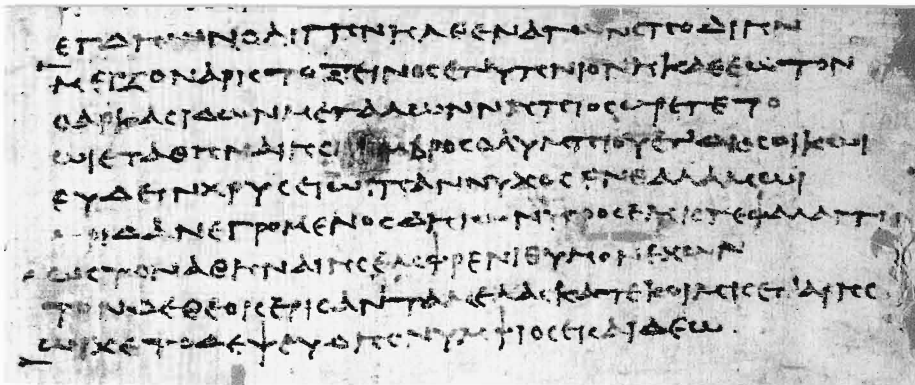 ΕΓΔΗΙΩΝΟΛΙΓΗΝΗΛΘΕΝΑΓΩΝϹΠΟΔΙΗΝ
ΜΕΙΖΟΝΑΡΙϹΤΟΞΕΙΝΟϹΕΝΥΠΝΙΟΝΗΚΑΘΕΩΥΤΟΝ
ΟΑΡΚΑϹΙΔΩΝΜΕΓΑΛΩΝΝΗΠΙΟϹΩΡΕΓΕΤΟ
ΩΙΕΤΑΘΗΝΑΙΗϹ ΓΑΜΒΡΟϹΟΛΥΜΠΙΟΥΕΝΔΙΟϹΟΙΚΩΙ
ΕΥΔΕΙΝΧΡΥϹΕΙΩΙΠΑΝΝΥΧΟϹΕΝΘΑΛΑΜΩΙ
ΔΑΝΕΓΡΟΜΕΝΟϹΔΗΙΩΝΠΡΟϹΕΜΙϹΓΕΦΑΛΑΓΓΙ
ΩϹΤΟΝΑΘΗΝΑΙΗϹΕΜΦΡΕΝΙΘΥΜΟΝΕΧΩΝ
ΤΟΝΔΕΘΕΟΙϹΕΡΙϹΑΝΤΑΜΕΛΑϹΚΑΤΕΚΟΙΜΙϹΕΤΑΡΗϹ
ΩΙΧΕΤΟΔΕΨΕΥΔΗϹΝΥΜΦΙΟϹΕΙϹΑΙΔΕΩ